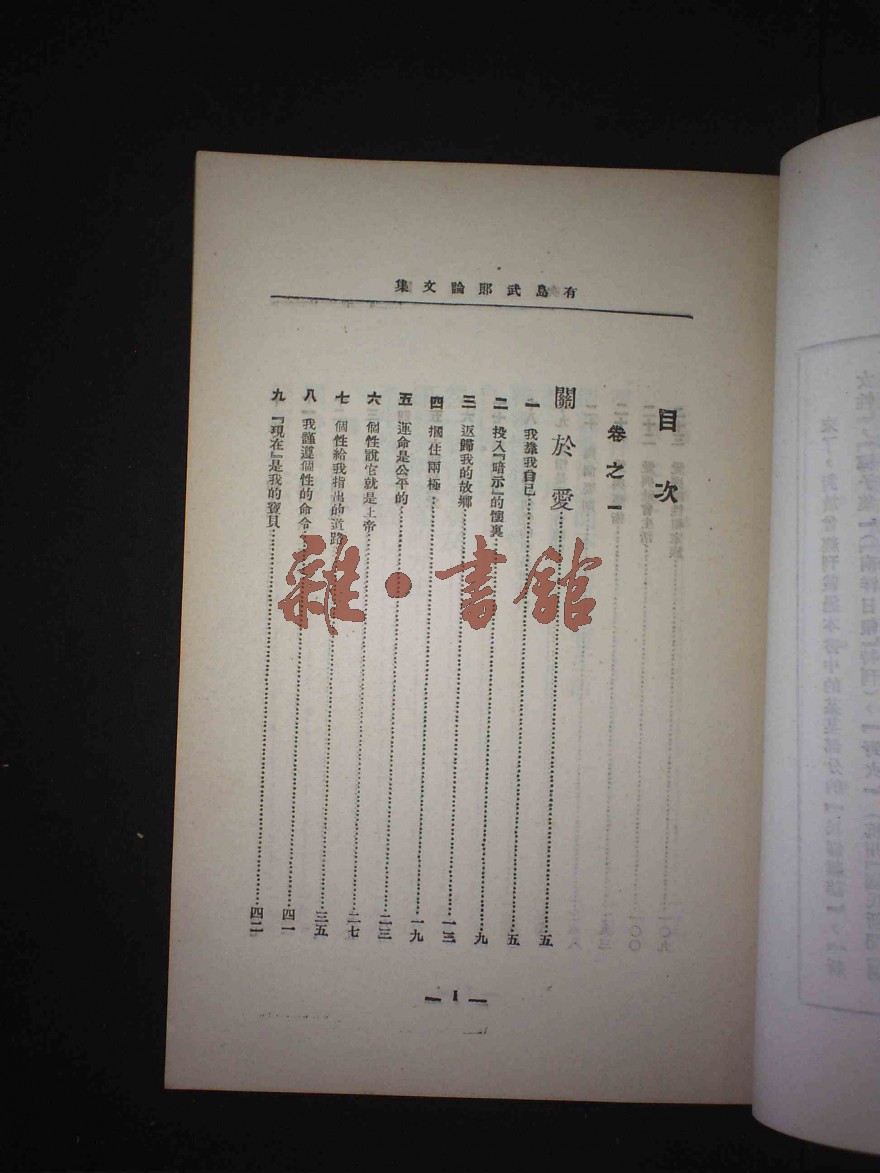 有島武郎論文集
目次
卷之一
關於愛……五
一 我靠我自己……五
二 投入『暗示』的懷裏……九
三 返歸我的故鄉……一三
四 摑住兩極……一九
五 運命是公平的……二三
六 個性說它就是上帝……二七
七 個性給我指出的道路……三五
八 我謹遵個性的命令……四一
九 『現在』是我的寶貝……四二
— 1 —
雜·書館